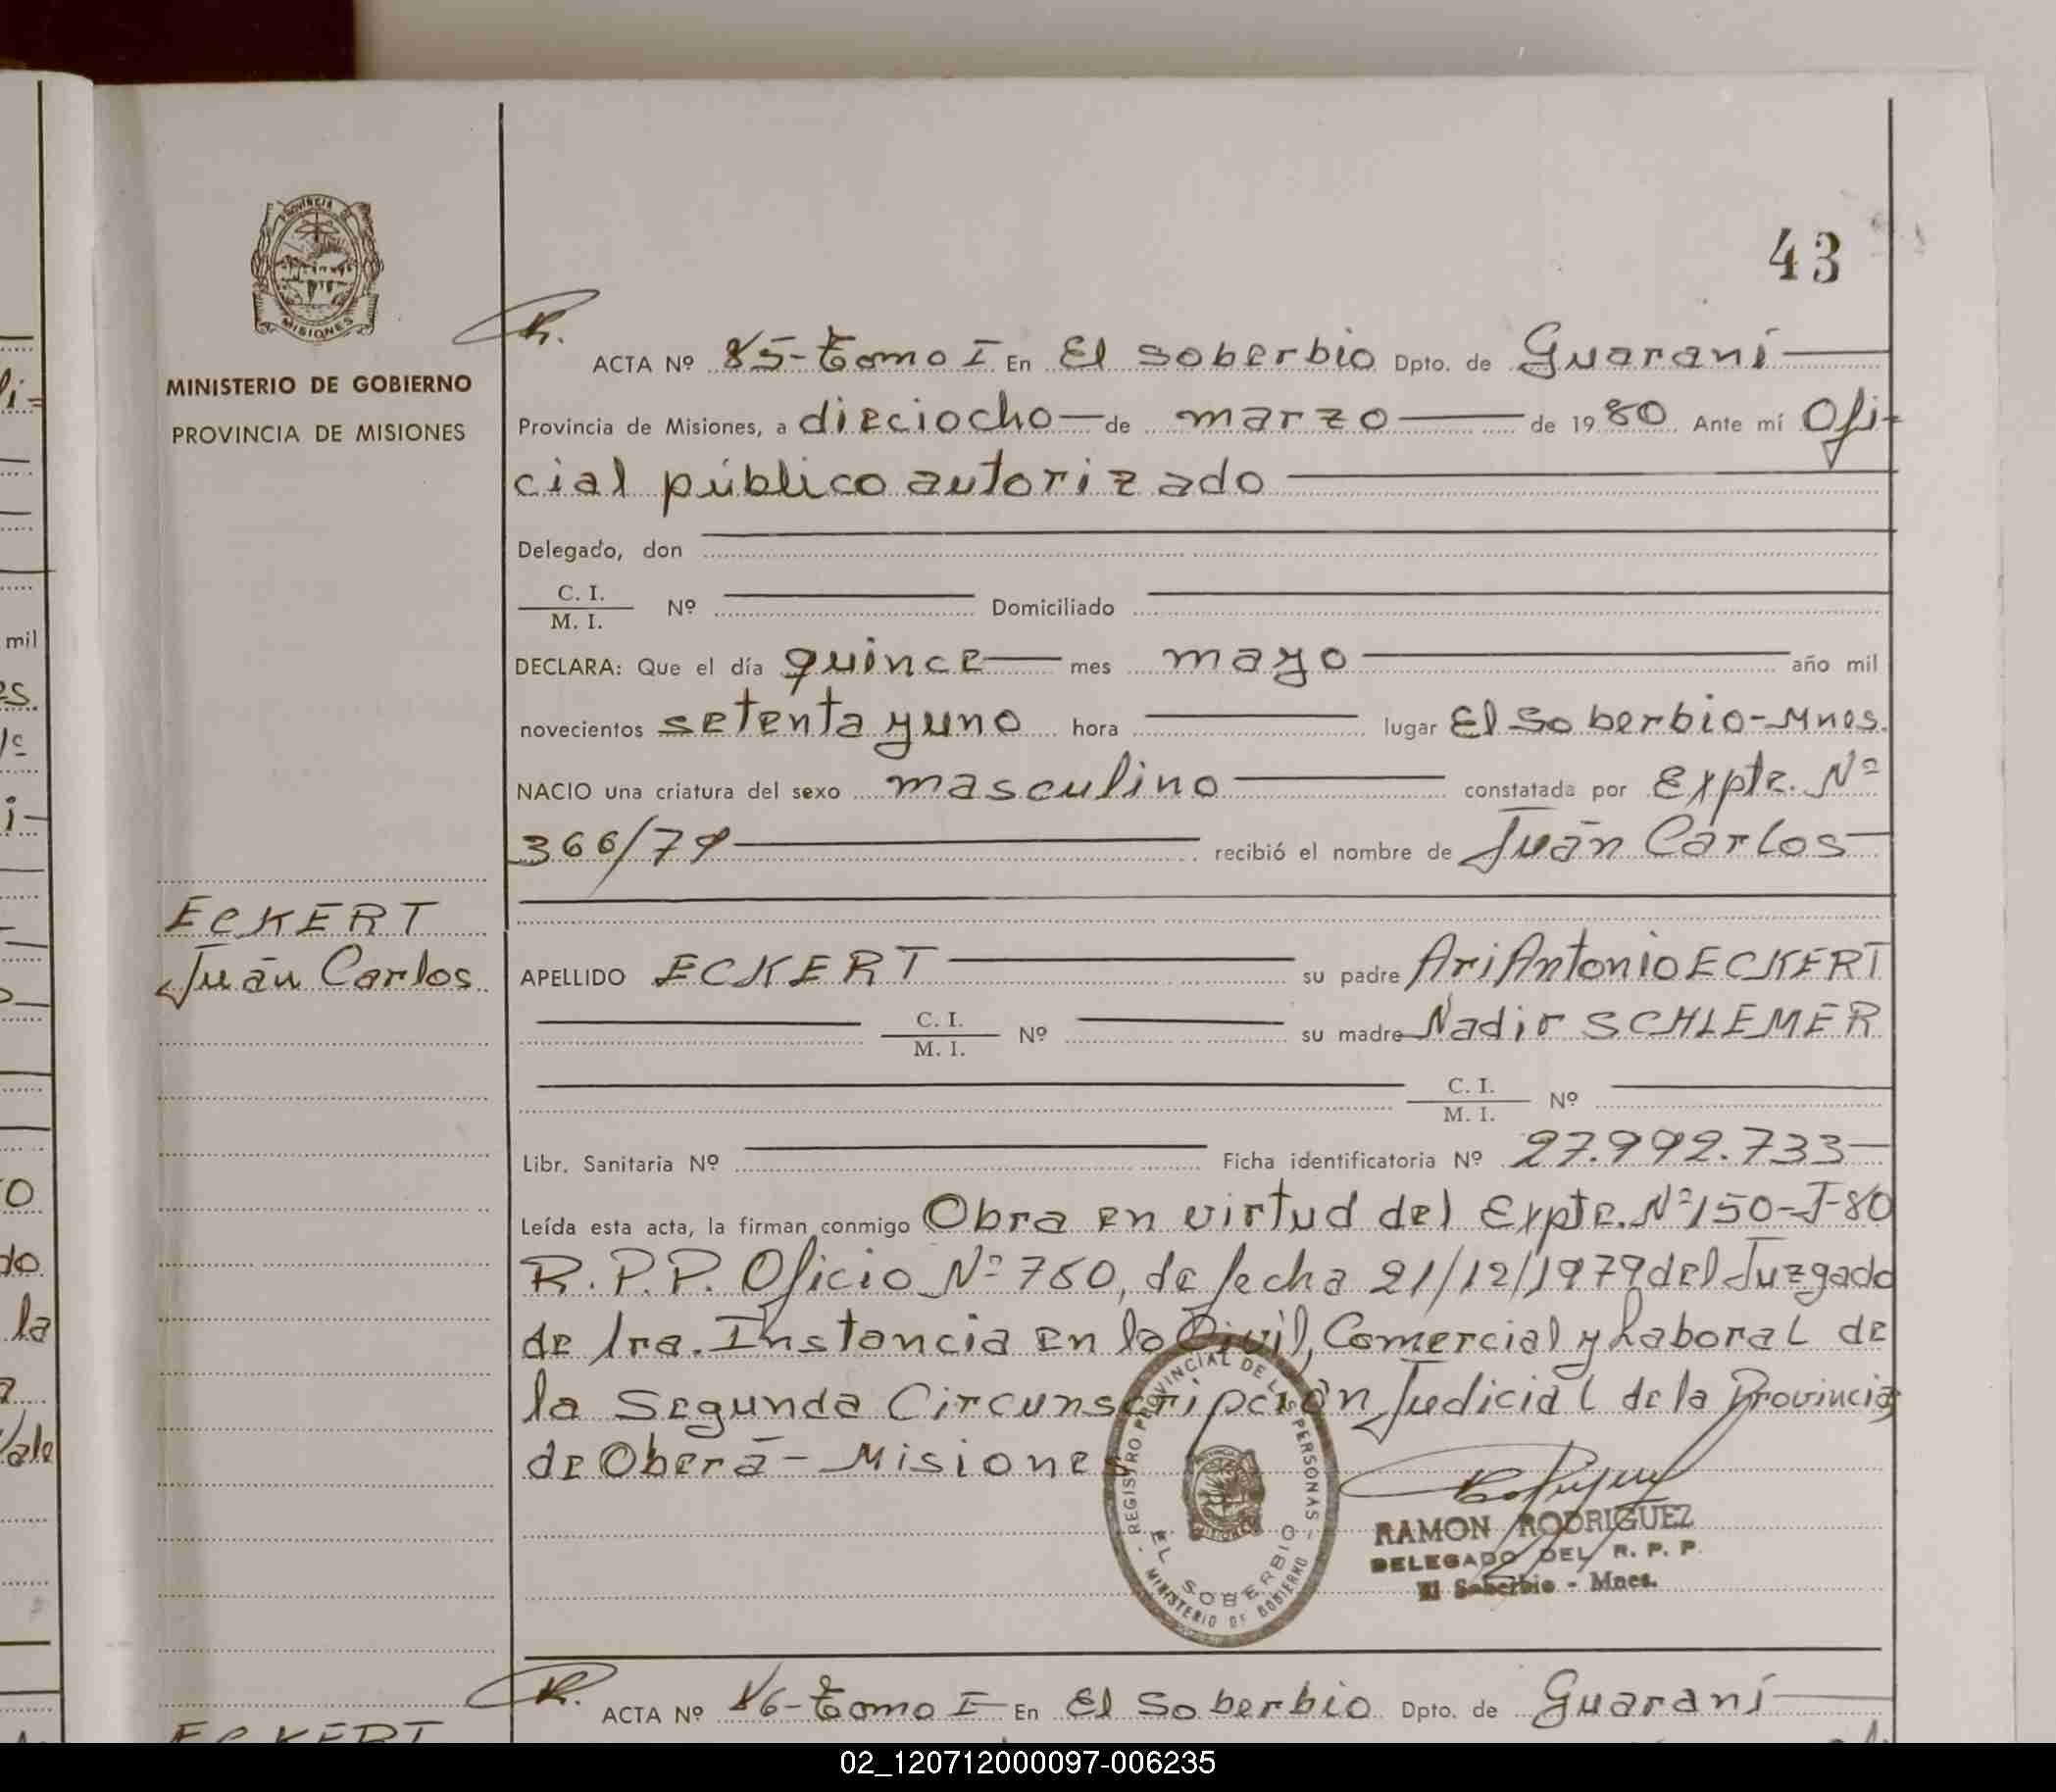 43
PROVINCIA DE
MISIONES
MINISTERIO DE GOBIERNO
PROVINCIA DE MISIONES
ACTA Nº 85-Tomo I En El Soberbio Dpto. de Guaraní
Provincia de Misiones, a dieciocho de marzo de 1980 Ante mí Ofi-
cial público autorizado
Delegado, don
C. I.
M. I. Nº Domiciliado
DECLARA: Que el día quince mes mayo año mil
novecientos setenta y uno hora lugar El Soberbio-Mnes.
NACIO una criatura del sexo masculino constatada por Expte. Nº
366/79 recibió el nombre de Juán Carlos
ECKERT
Juán Carlos
APELLIDO ECKERT su padre Ari Antonio ECKERT
C. I.
M. I. Nº su madre Nadir SCHLEMER
C. I.
M. I. Nº
Libr. Sanitaria Nº Ficha identificatoria Nº 27.992.733
Leída esta acta, la firman conmigo Obra en virtud del Expte. Nº 150-J-80
R.P.P. Oficio Nº 760, de fecha 21/12/1979 del Juzgado
de 1ra. Instancia en lo Civil, Comercial y Laboral de
la Segunda Circunscripción Judicial de la Provincia
de Oberá - Misiones
REGISTRO PROVINCIAL DE LAS PERSONAS
EL SOBERBIO
MINISTERIO DE GOBIERNO
RAMON RODRIGUEZ
DELEGADO DEL R. P. P.
El Soberbio - Mnes.
ACTA Nº 86-Tomo I En El Soberbio Dpto. de Guaraní
ECKERT
02_120712000097-006235